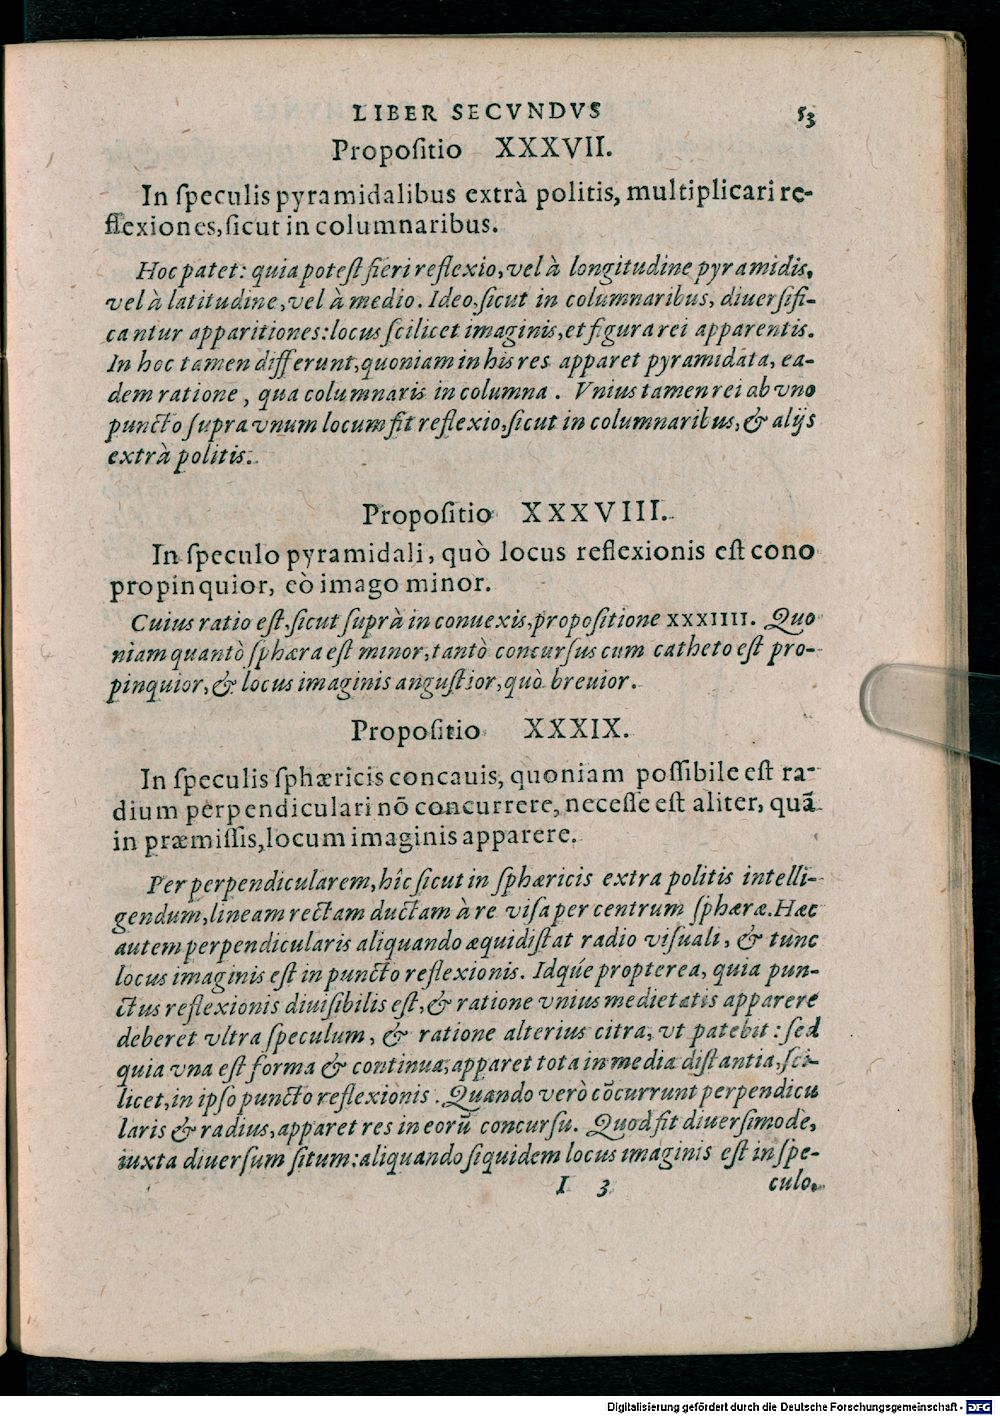 LIBER SECVNDVS 53
Propoſitio XXXVII.
In ſpeculis pyramidalibus extrà politis, multiplicari re-
flexiones, ſicut in columnaribus.
Hoc patet: quia poteſt fieri reflexio, vel à longitudine pyramidis,
vel à latitudine, vel à medio. Ideo, ſicut in columnaribus, diuerſifi-
cantur apparitiones: locus ſcilicet imaginis, et figura rei apparentis.
In hoc tamen differunt, quoniam in his res apparet pyramidata, ea-
dem ratione, qua columnaris in columna. Vnius tamen rei ab vno
puncto ſupra vnum locum fit reflexio, ſicut in columnaribus, & alijs
extrà politis.
Propoſitio XXXVIII.
In ſpeculo pyramidali, quò locus reflexionis eſt cono
propinquior, eò imago minor.
Cuius ratio eſt, ſicut ſuprà in conuexis, propoſitione XXXIIII. Quo
niam quantò ſphæra eſt minor, tantò concurſus cum catheto eſt pro-
pinquior, & locus imaginis anguſtior, quò breuior.
Propoſitio XXXIX.
In ſpeculis ſphæricis concauis, quoniam poſſibile eſt ra-
dium perpendiculari nõ concurrere, neceſſe eſt aliter, quã
in præmiſſis, locum imaginis apparere.
Per perpendicularem, hîc ſicut in ſphæricis extra politis intelli-
gendum, lineam rectam ductam à re viſa per centrum ſphæræ. Hæc
autem perpendicularis aliquando æquidiſtat radio viſuali, & tunc
locus imaginis eſt in puncto reflexionis. Idq́ue propterea, quia pun-
ctus reflexionis diuiſibilis eſt, & ratione vnius medietatis apparere
deberet vltra ſpeculum, & ratione alterius citra, vt patebit: ſed
quia vna eſt forma & continua, apparet tota in media diſtantia, ſci-
licet, in ipſo puncto reflexionis. Quando verò cõcurrunt perpendicu
laris & radius, apparet res in eorũ concurſu. Quod fit diuerſimode,
iuxta diuerſum ſitum: aliquando ſiquidem locus imaginis eſt in ſpe-
I 3 culo.
Digitalisierung gefördert durch die Deutsche Forschungsgemeinschaft - DFG